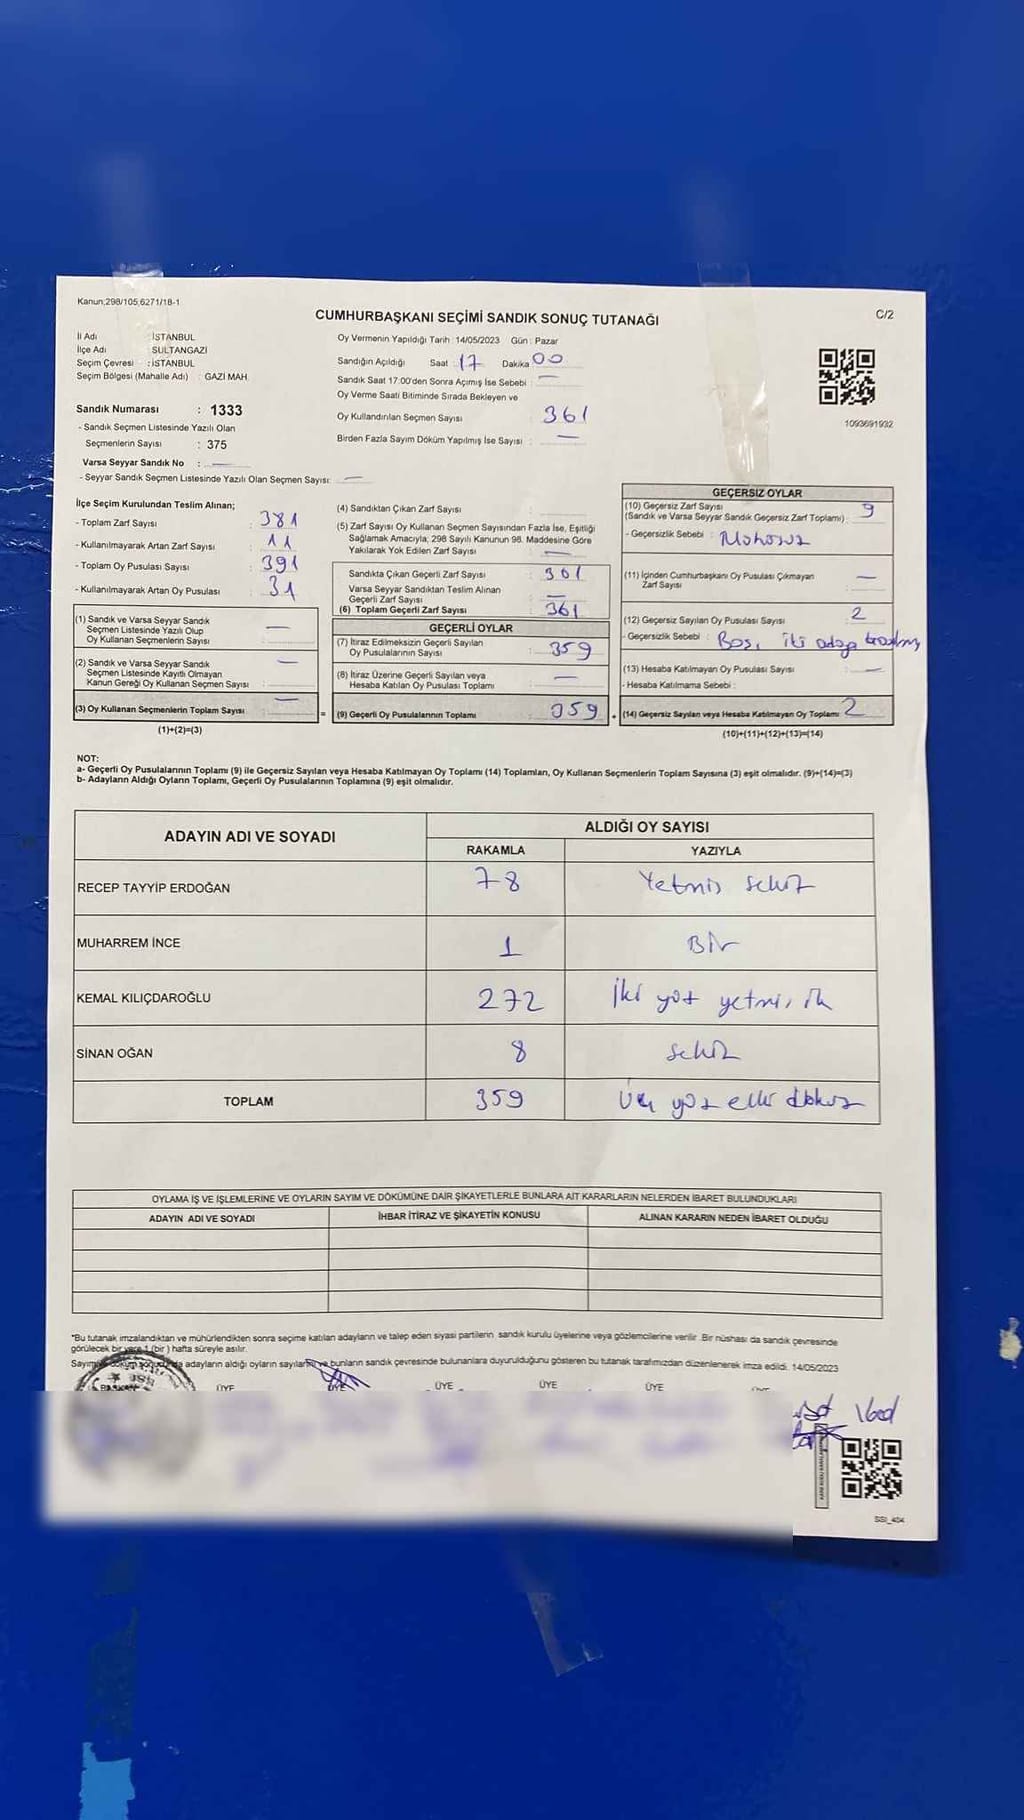 Kanun;298/105,6271/18-1
CUMHURBAŞKANI SEÇİMİ SANDIK SONUÇ TUTANAĞI
C/2
İl Adı : İSTANBUL
İlçe Adı : SULTANGAZİ
Seçim Çevresi : İSTANBUL
Seçim Bölgesi (Mahalle Adı) : GAZİ MAH.
Sandık Numarası : 1333
- Sandık Seçmen Listesinde Yazılı Olan
Seçmenlerin Sayısı : 375
Varsa Seyyar Sandık No : —
- Seyyar Sandık Seçmen Listesinde Yazılı Olan Seçmen Sayısı: —
Oy Vermenin Yapıldığı Tarih : 14/05/2023 Gün : Pazar
Sandığın Açıldığı Saat : 17 Dakika : 00
Sandık Saat 17:00'den Sonra Açımış İse Sebebi : —
Oy Verme Saati Bitiminde Sırada Bekleyen ve
Oy Kullandırılan Seçmen Sayısı : 361
Birden Fazla Sayım Döküm Yapılmış İse Sayısı : —
1093691932
İlçe Seçim Kurulundan Teslim Alınan;
- Toplam Zarf Sayısı : 381
- Kullanılmayarak Artan Zarf Sayısı : 11
- Toplam Oy Pusulası Sayısı : 391
- Kullanılmayarak Artan Oy Pusulası : 31
(1) Sandık ve Varsa Seyyar Sandık
Seçmen Listesinde Yazılı Olup
Oy Kullanan Seçmenlerin Sayısı : —
(2) Sandık ve Varsa Seyyar Sandık
Seçmen Listesinde Kayıtlı Olmayan
Kanun Gereği Oy Kullanan Seçmen Sayısı : —
(3) Oy Kullanan Seçmenlerin Toplam Sayısı : —
(1)+(2)=(3)
(4) Sandıktan Çıkan Zarf Sayısı :
(5) Zarf Sayısı Oy Kullanan Seçmen Sayısından Fazla İse, Eşitliği
Sağlamak Amacıyla; 298 Sayılı Kanunun 98. Maddesine Göre
Yakılarak Yok Edilen Zarf Sayısı : —
Sandıkta Çıkan Geçerli Zarf Sayısı : 361
Varsa Seyyar Sandıktan Teslim Alınan
Geçerli Zarf Sayısı : —
(6) Toplam Geçerli Zarf Sayısı : 361
GEÇERLİ OYLAR
(7) İtiraz Edilmeksizin Geçerli Sayılan
Oy Pusulalarının Sayısı : 359
(8) İtiraz Üzerine Geçerli Sayılan veya
Hesaba Katılan Oy Pusulası Toplamı : —
= (9) Geçerli Oy Pusulalarının Toplamı : 359
GEÇERSİZ OYLAR
(10) Geçersiz Zarf Sayısı
(Sandık ve Varsa Seyyar Sandık Geçersiz Zarf Toplamı) : 9
- Geçersizlik Sebebi : Mühürsüz
(11) İçinden Cumhurbaşkanı Oy Pusulası Çıkmayan
Zarf Sayısı : —
(12) Geçersiz Sayılan Oy Pusulası Sayısı : 2
- Geçersizlik Sebebi : Boş, iki adaya
(13) Hesaba Katılmayan Oy Pusulası Sayısı : —
- Hesaba Katılmama Sebebi :
(14) Geçersiz Sayılan veya Hesaba Katılmayan Oy Toplamı : 2
(10)+(11)+(12)+(13)=(14)
NOT:
a- Geçerli Oy Pusulalarının Toplamı (9) ile Geçersiz Sayılan veya Hesaba Katılmayan Oy Toplamı (14) Toplamları, Oy Kullanan Seçmenlerin Toplam Sayısına (3) eşit olmalıdır. (9)+(14)=(3)
b- Adayların Aldığı Oyların Toplamı, Geçerli Oy Pusulalarının Toplamına (9) eşit olmalıdır.
ADAYIN ADI VE SOYADI ALDIĞI OY SAYISI
RAKAMLA YAZIYLA
RECEP TAYYİP ERDOĞAN 78 Yetmiş sekiz
MUHARREM İNCE 1 Bir
KEMAL KILIÇDAROĞLU 272 İki yüz yetmiş iki
SİNAN OĞAN 8 sekiz
TOPLAM 359 Üç yüz elli dokuz
OYLAMA İŞ VE İŞLEMLERİNE VE OYLARIN SAYIM VE DÖKÜMÜNE DAİR ŞİKAYETLERLE BUNLARA AİT KARARLARIN NELERDEN İBARET BULUNDUKLARI
ADAYIN ADI VE SOYADI İHBAR İTİRAZ VE ŞİKAYETİN KONUSU ALINAN KARARIN NEDEN İBARET OLDUĞU
*Bu tutanak imzalandıktan ve mühürlendikten sonra seçime katılan adayların ve talep eden siyasi partilerin sandık kurulu üyelerine veya gözlemcilerine verilir. Bir nüshası da sandık çevresinde
görülecek bir yere 1 (bir ) hafta süreyle asılır.
Sayım adayların aldığı oyların sayıları bunların sandık çevresinde bulunanlara duyurulduğunu gösteren bu tutanak tarafımızdan düzenlenerek imza edildi. 14/05/2023
BAŞKAN ÜYE ÜYE ÜYE ÜYE ÜYE
SSI_404